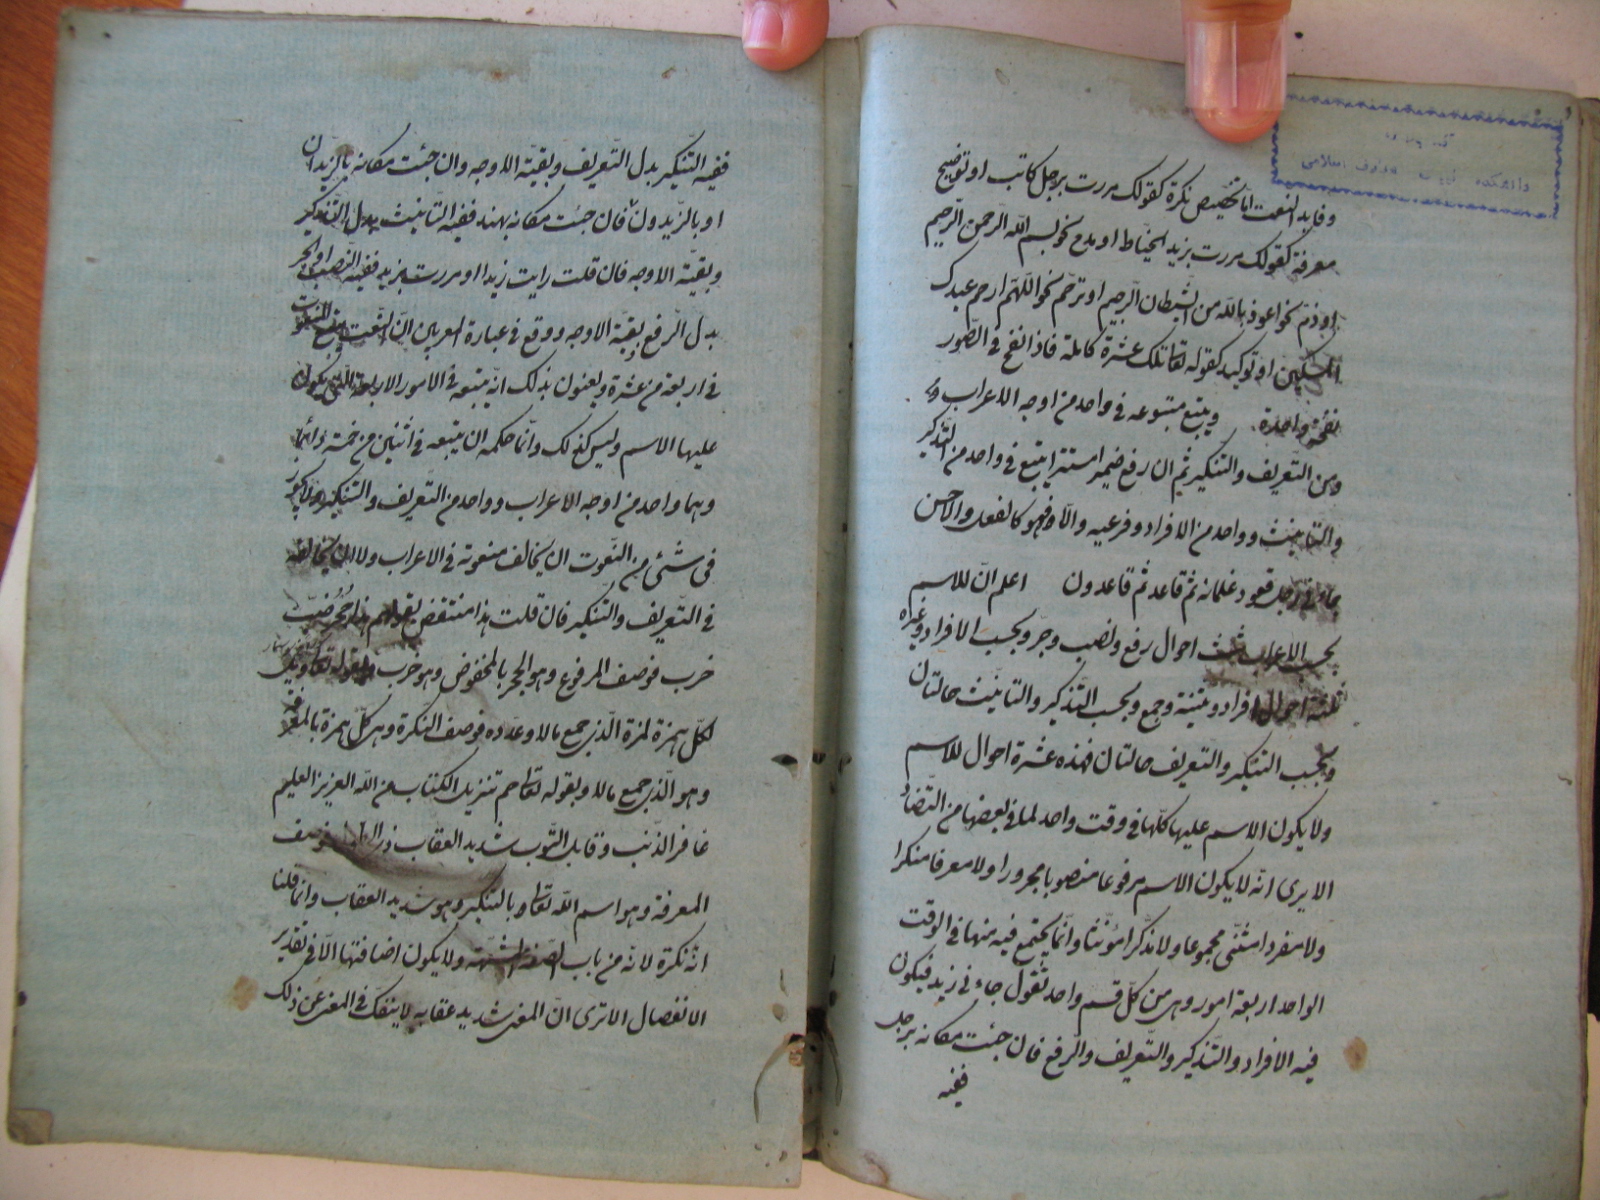 وفايدة النعت اما تخصيص نكرة كقولك مررت برجل كاتب او توضيح
معرفة كقولك مررت بزيد الخياط او مدح نحو بسم الله الرحمن الرحيم
او ذم نحو اعوذ بالله من الشيطان الرجيم او ترحم نحو اللهم ارحم عبدك
المسكين او توكيد كقوله تعا تلك عشرة كاملة فاذا نفخ فى الصور
نفخة واحدة ويتبع متبوعه فى واحد من اوجه الاعراب
ومن التعريف والتنكير ثم ان رفع ضميرا مستترا يتبع فى واحد من التذكير
والتانيث وواحد من الافراد وفرعيه والا فهو كالفعل والاحسن
جاءنى رجل قعود غلمانه ثم قاعد ثم قاعدون اعلم ان للاسم
بحسب الاعراب ثلث احوال رفع ونصب وجر وبحسب الافراد وغيره
ثلثة احوال افراد وتثنية وجمع وبحسب التذكير والتانيث حالتان
وبحسب التنكير والتعريف حالتان فهذه عشرة احوال للاسم
ولا يكون الاسم عليها كلها فى وقت واحد لما فى بعضها من التضاد
الا يرى انه لا يكون الاسم مرفوعا منصوبا مجرورا ولا معرفا منكرا
ولا مفردا مثنى مجموعا ولا مذكرا مؤنثا وانما يجتمع فيه منها فى الوقت
الواحد اربعة امور وهى من كل قسم واحد تقول جاءنى زيد فيكون
فيه الافراد والتذكير والتعريف والرفع فان جئت مكانه برجل
ففيه
ففيه التنكير بدل التعريف وبقية الاوجه وان جئت مكانه بالزيدان
او بالزيدون فان جئت مكانه بهند ففيه التانيث بدل التذكير
وبقية الاوجه فان قلت رايت زيدا او مررت بزيد ففيه النصب او الجر
بدل الرفع وبقية الاوجه ووقع فى عبارة المعربين ان النعت يتبع المنعوت
فى اربعة من عشرة ويعنون بذلك انه يتبعه فى الامور الاربعة التى يكون
عليها الاسم وليس كذلك وانما حكمه ان يتبعه فى اثنين من خمسة دائما
وهما واحد من اوجه الاعراب وواحد من التعريف والتنكير ولا يجوز
فى شئ من النعوت ان يخالف منعوته فى الاعراب ولا ان يخالفه
فى التعريف والتنكير فان قلت هذا منتقض بقولهم هذا جحر ضب
خرب فوصف المرفوع وهو الجحر بالمخفوض وهو خرب وبقوله تعا ويل
لكل همزة لمزة الذى جمع مالا وعدده فوصف النكرة وهى كل همزة بالمعرفة
وهو الذى جمع مالا وبقوله تعا حم تنزيل الكتاب من الله العزيز العليم
غافر الذنب وقابل التوب شديد العقاب ذى الطول فوصف
المعرفة وهو اسم الله تعا بالنكرة وهو شديد العقاب وانما قلنا
انه نكرة لانه من باب الصفة المشبهة ولا يكون اضافتها الا فى تقدير
الانفصال الا ترى ان المعنى شديد عقابه لا ينفك فى المعنى عن ذلك